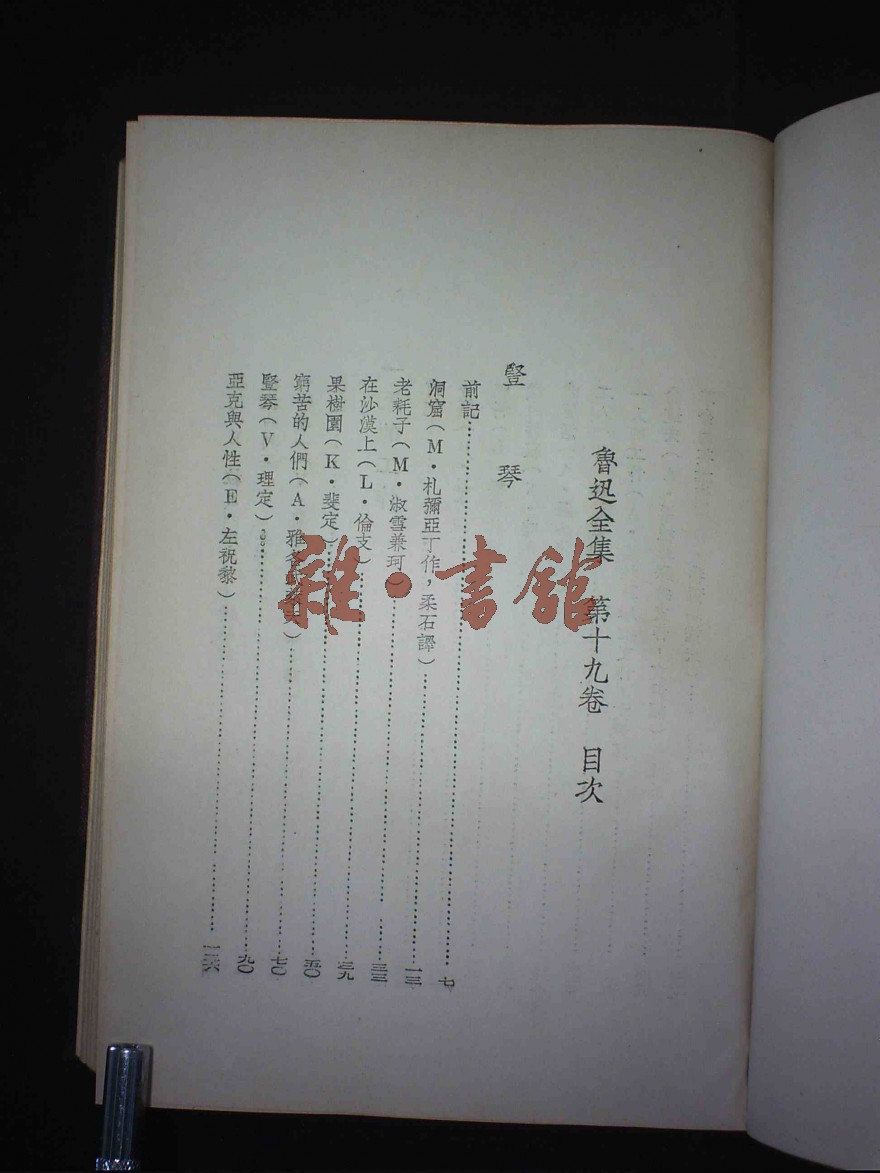 魯迅全集 第十九卷 目次
豎琴
前記……七
洞窟(M·札彌亞丁作,柔石譯)……一三
老耗子(M·淑雪兼珂)……三三
在沙漠上(L·倫支)……三九
果樹園(K·斐定)……五〇
窮苦的人們(A·雅各夫)……七〇
豎琴(V·理定)……九〇
亞克與人性(E·左祝黎)……
雜·書館